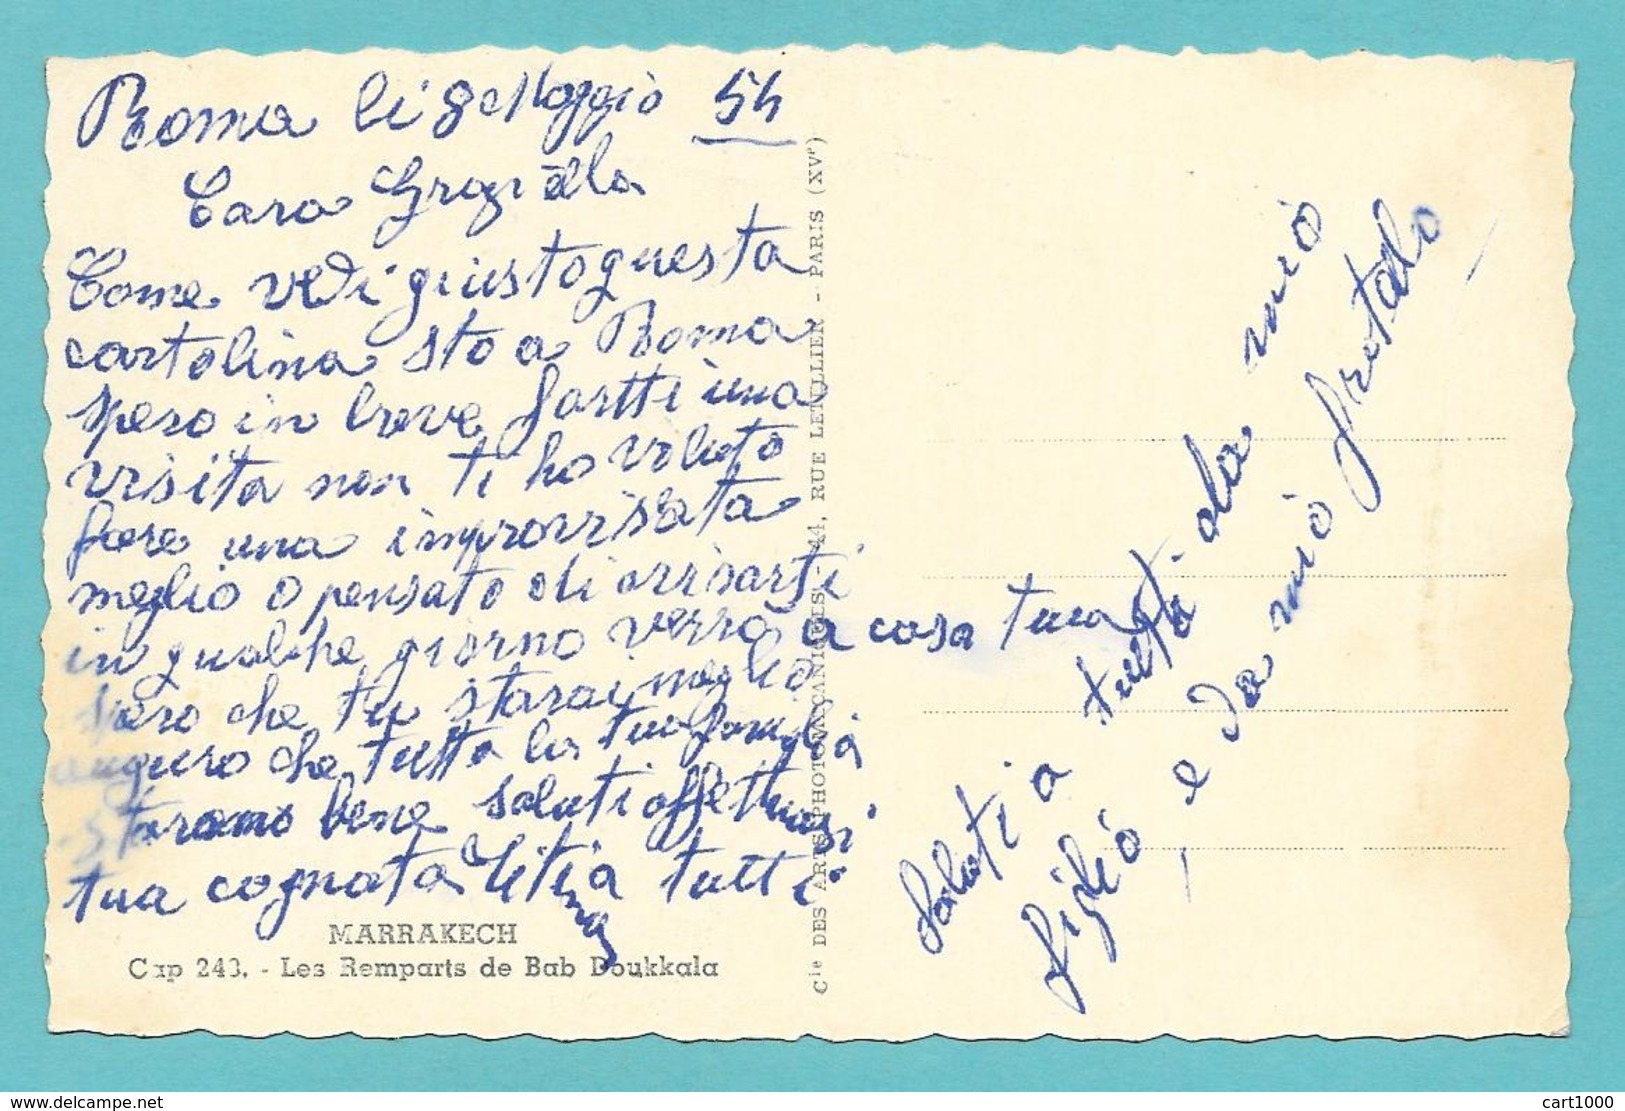 Roma li 8 Maggio 54
Cara Graziella
Come vedi giusto questa
cartolina sto a Roma
spero in breve fartti una
visita non ti ho voluto
fare una improvvisata
meglio o pensato di avvisarti
in qualche giorno verrò a casa tua
spero che tu starai meglio
auguro che tutta la tua famiglia
staranno bene saluti affettuosi
tua cognata Titina tutti
Saluti a tutti da mio
figlio e da mio fratello
MARRAKECH
Cap 243. - Les Remparts de Bab Doukkala
Cie DES ARTS PHOTOMÉCANIQUES, 44, RUE LETELLIER - PARIS (XVe)
www.delcampe.net
cart1000